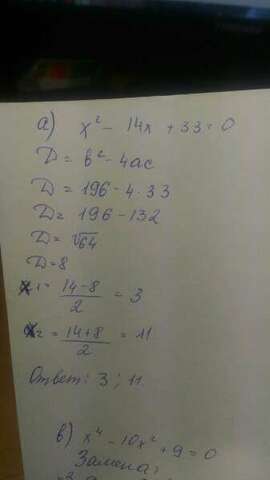 а) x² - 14x + 33 = 0
D = b² - 4ac
D = 196 - 4·33
D = 196 - 132
D = √64
D = 8
x1 = (14-8)/2 = 3
x2 = (14+8)/2 = 11
Ответ: 3; 11.
в) x⁴ - 10x² + 9 = 0
Замена: